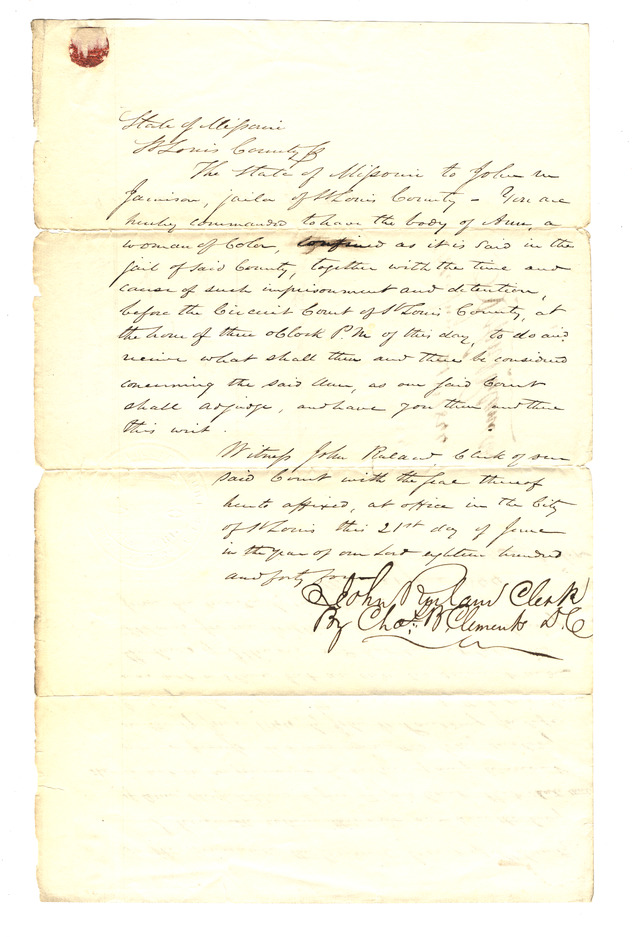 State of Missouri
St Louis County ss
The State of Missouri to John M
Jamison, jailor of St Louis County – You are
hereby commanded to have the body of Ann, a
woman of Color, confined as it is said in the
jail of said County, together with the time and
cause of such imprisonment and detention,
before the Circuit Court of St Louis County, at
the hour of three oClock P.M. of this day, to do and
receive what shall then and there be considered
concerning the said Ann, as our said Court
shall adjudge, and have you then and there
this writ.
Witness John Ruland Clerk of our
said Court with the seal thereof
hereto affixed, at office in the City
of St Louis this 21st day of June
in the year of our Lord eighteen hundred
and forty four
John Ruland Clerk
By Chas. B Clements D.C